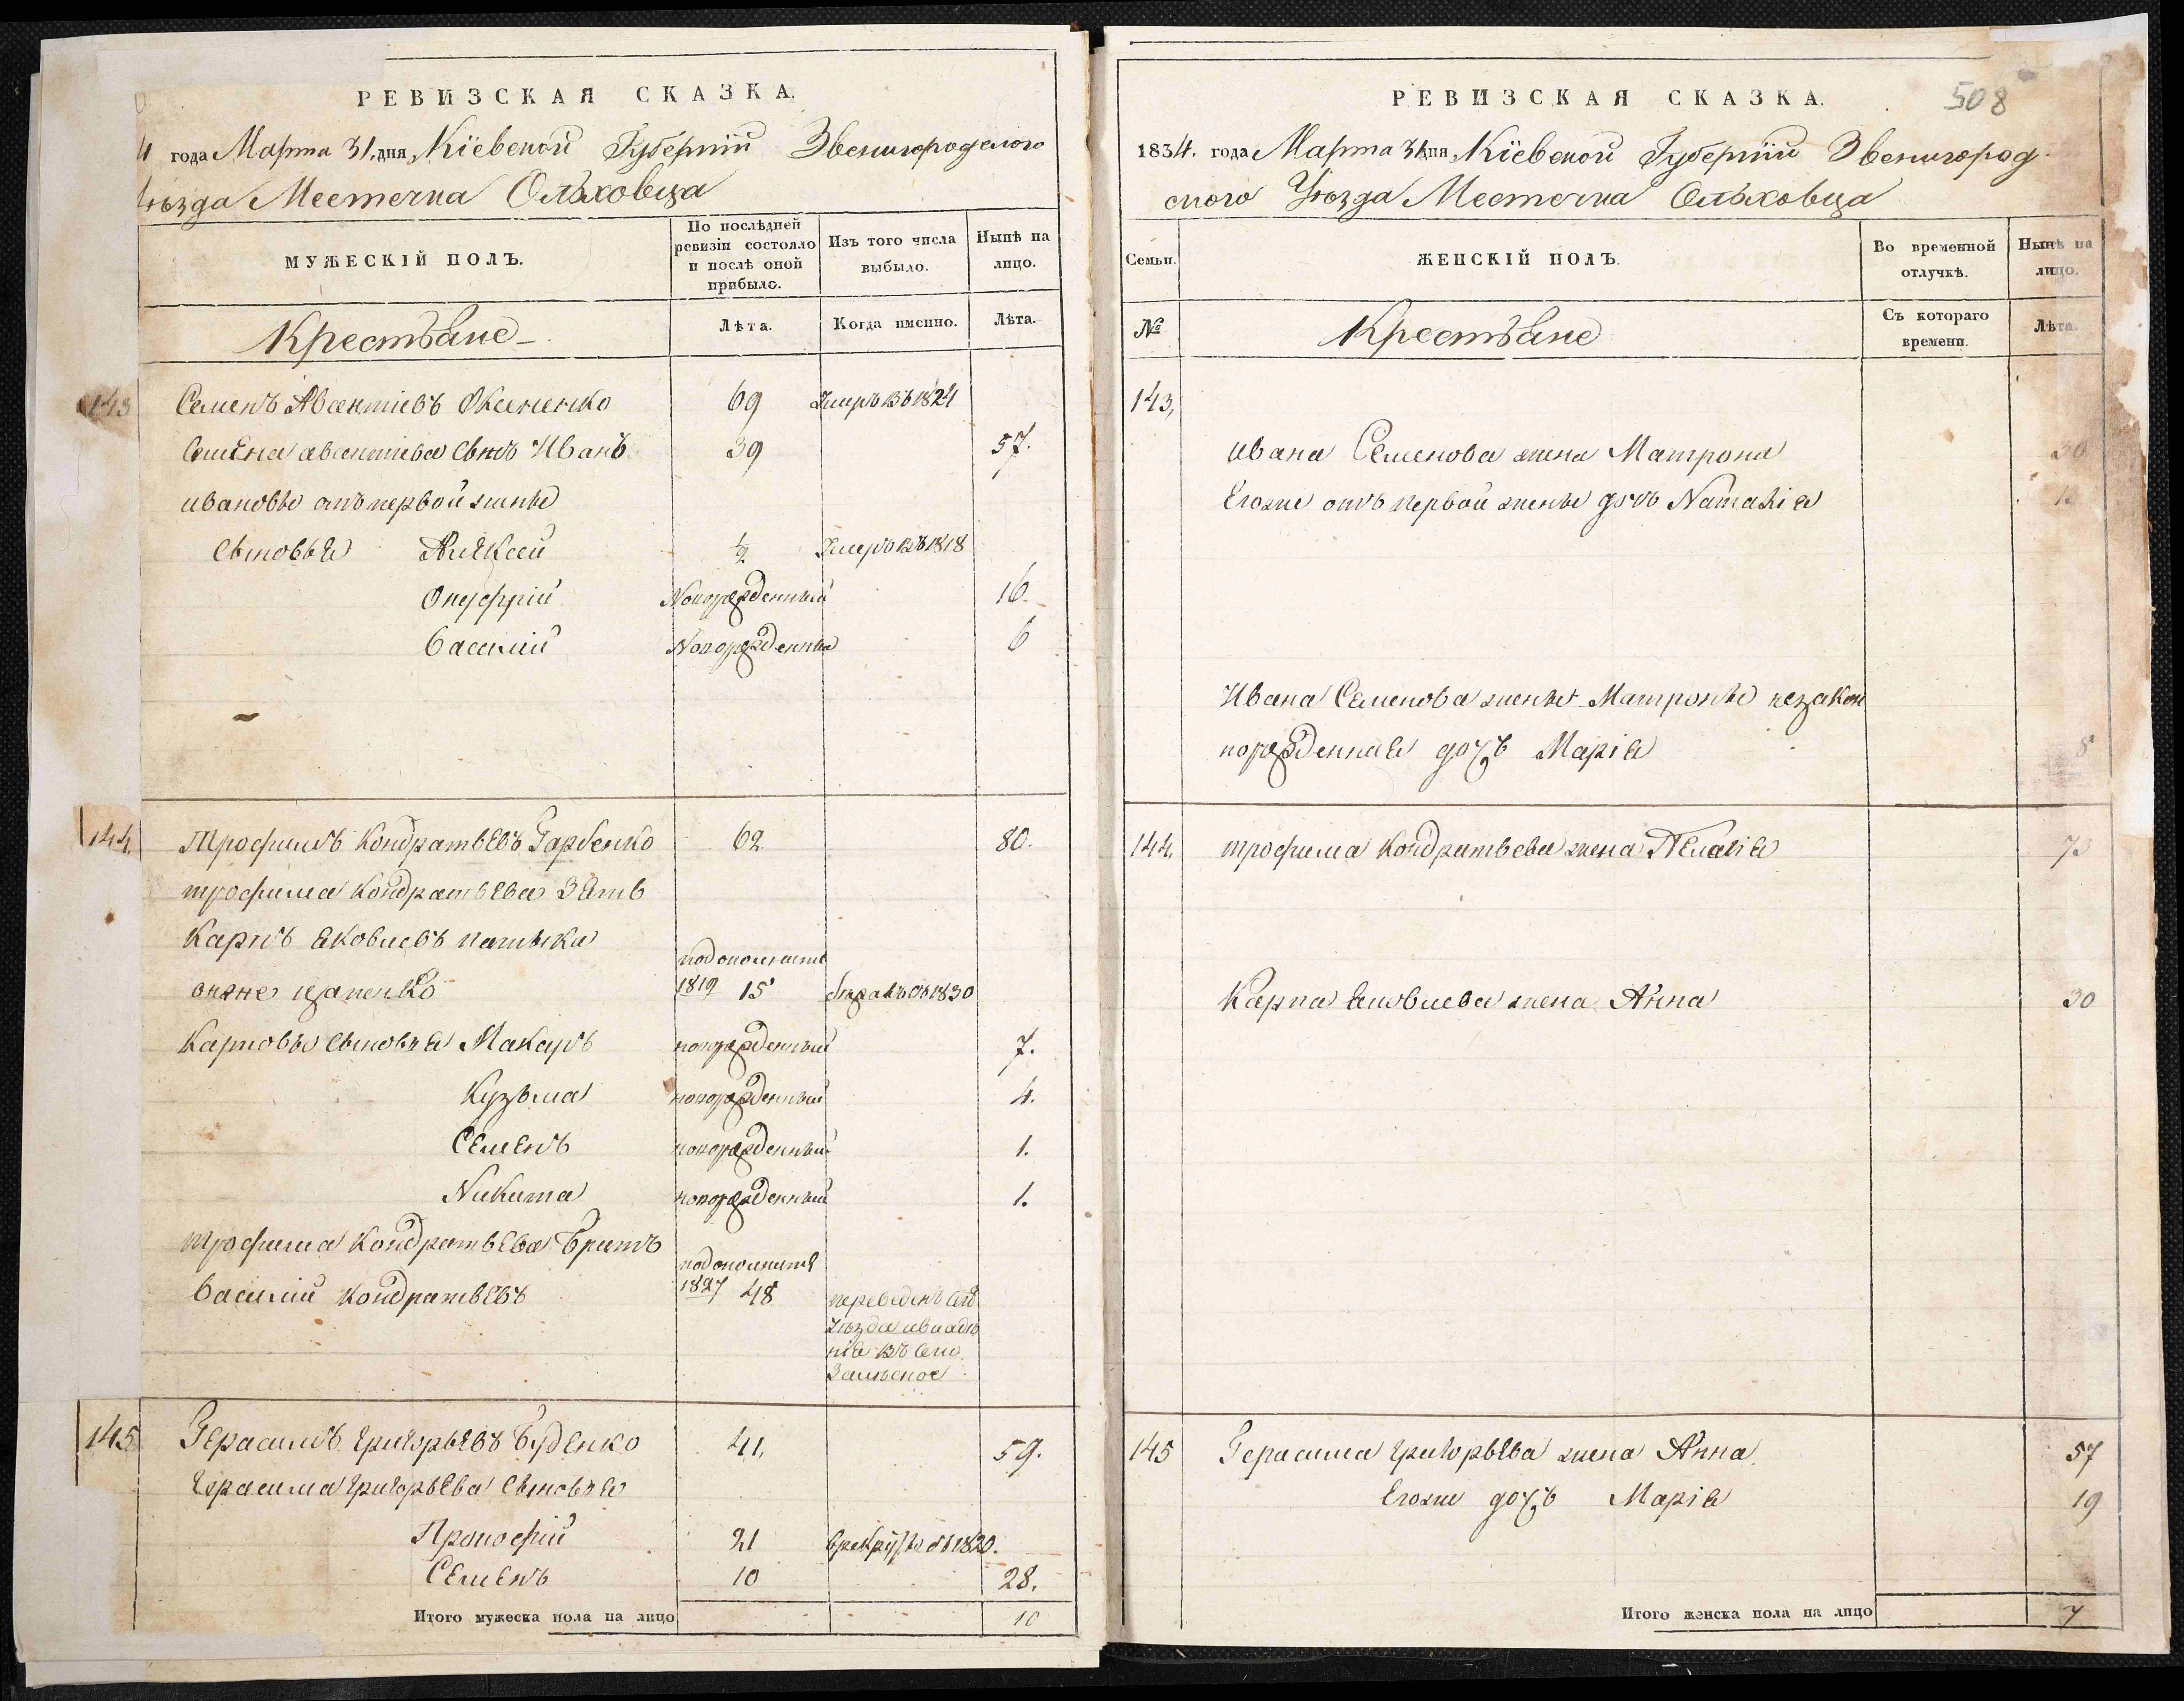 РЕВИЗСКАЯ СКАЗКА.
года Марта 31, дня, Кіевской Губерніи Звенигородского
Уѣзда Местечка Ольховца
МУЖЕСКІЙ ПОЛЪ.
По послѣдней ревизіи состояло и послѣ оной прибыло.
Изъ того числа выбыло.
Нынѣ на лицо.
Крестьяне
Лѣта.
Когда именно.
Лѣта.
143 Семенъ Авсентіевъ 69 Умеръ въ 1824
Семена авсентиева сынъ Иванъ 39 57.
ивановы отъ первой жены
сыновья Алексей ½ Умеръ въ 1818
Онуфрій Новорожденный 16.
Василий Новорожденны 6
144. Трофимъ Кондратьевъ Гарбенко 62. 80.
трофима Кондратьева Зять
Карпъ яковлевъ
онже подополнить 1819 15 въ 1830
Карповы сыновья Макаръ новорожденный 7.
Кузьма новорожденный 4.
Семенъ новорожденный 1.
Никита новорожденный 1.
трофима Кондратьева Братъ
Василий Кондратьевъ подополнить 1827 48 переведенъ сего
Уѣзда
въ село
145. Герасимъ григорьевъ Буденко 41, 59.
герасима григорьева сыновья
Прокофій 21 врекруты въ 1820.
Семенъ 10 28.
Итого мужеска пола на лицо 10
РЕВИЗСКАЯ СКАЗКА.
508
1834. года Марта 31 дня, Кіевской Губерніи Звенигород
ского Уѣзда Местечка Ольховца
Семьи.
ЖЕНСКІЙ ПОЛЪ.
Во временной отлучкѣ.
Нынѣ на лицо.
№
Крестьяне
Съ котораго времени.
Лѣта.
143,
ивана Семенова жена Матрона 30
Егоже отъ первой жены дочь Наталія
Ивана Семенова жены Матроны незакон
норожденная дочь Марія 8
144. трофима Кондратьева жена Пелагія 73
Карпа яковлева жена Анна 30
145 Герасима григорьева жена Анна 57
Егоже дочь Марія 19
Итого женска пола на лицо 7